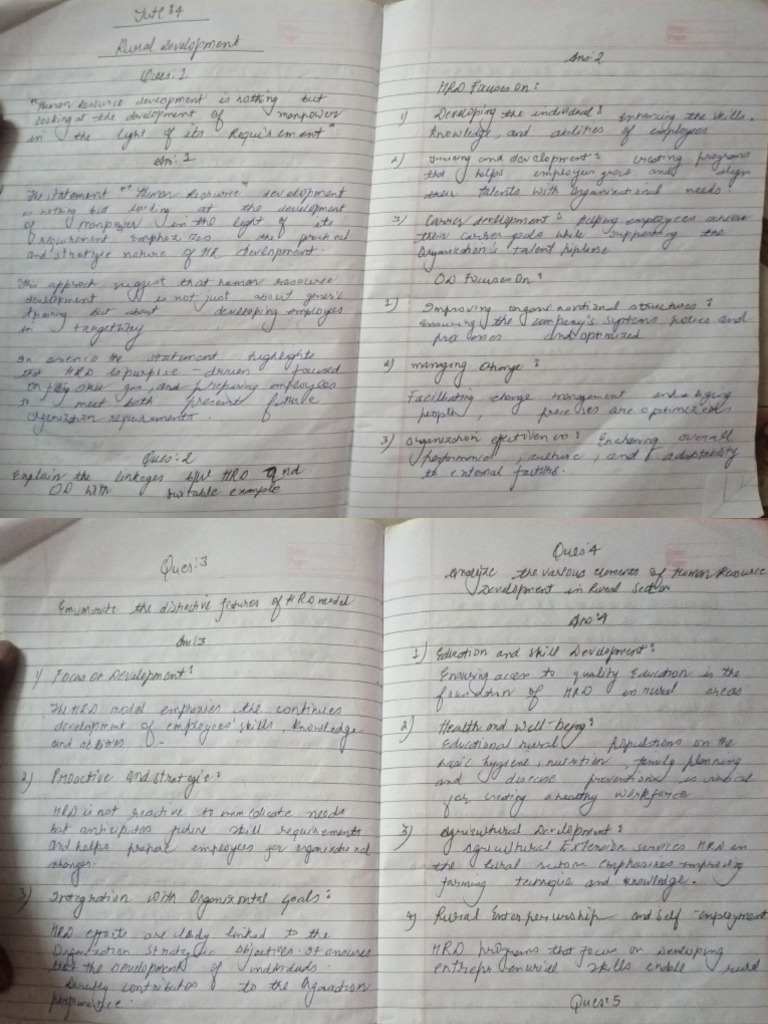 Tut : 4
Rural Development
Ques: 1
"Human Resource development is nothing but
looking at the development of manpower
in the light of its Requirement"
Ans: 1
The statement "Human Resource" development
is nothing but looking at the development
of manpower in the light of its
requirement emphasizes the practical
and strategic nature of HR development.
This approach suggest that human resource
development is not just about generic
training but about developing employees
in
In the statement highlights
that HRD is purpose - driven focused
on skill and preparing employees
to meet both present future
Organization requirements.
Ques: 2
Explain the linkages b/w HRD and
OD with suitable example
Ans: 2
HRD Focuses on :
1) Developing the individual : Enhancing the skills,
knowledge, and abilities of employees
2) Training and development : creating programs
that helps employees grow and align
their talents with organizational needs
3) Career development : Helping employees achieve
their career goals while supporting the
Organization's talent pipeline
OD Focuses On :
1) Improving organizational structures :
ensuring the company's systems, polices and
processes and optimized
2) managing change :
Facilitating change management and
people, processes are optimized
3) organization effectiveness : Enchening overall
performance, culture, and adaptability
to external factors.
Ques: 3
Enumurate the distinctive features of HRD model
Ans: 3
1) Focus on Development :
The HRD model emphasizes the continues
development of employees' skills, knowledge
and abilities -
2) Proactive and strategic :
HRD is not reactive to immediate needs
but anticipates future skill requirements
and helps prepare employees for organizational
changes.
3) Integration with Organizational Goals :
HRD efforts are closely linked to the
Organization Strategic objectives. It ensures
that the development of individuals
directly contributes to the Organization
performance.
Ques: 4
Analyze the various elements of Human Resource
Development in Rural Sector
Ans: 4
1) Eduction and skill Development :
Ensuring access to quality Education is the
foundation of HRD in rural areas
2) Health and Well-being :
Educational rural Populations on the
basic hygiene, nutrition, family planning
and disease preventions is
for creating a healthy workforce
3) Agricultural Development :
Agricultural Extension services HRD in
the Rural sector emphasises improving
farming technique and knowledge.
4) Rural Enterpernurship and Self-employment
HRD programs that focus on developing
entreprenurial skills enable rural
Ques: 5